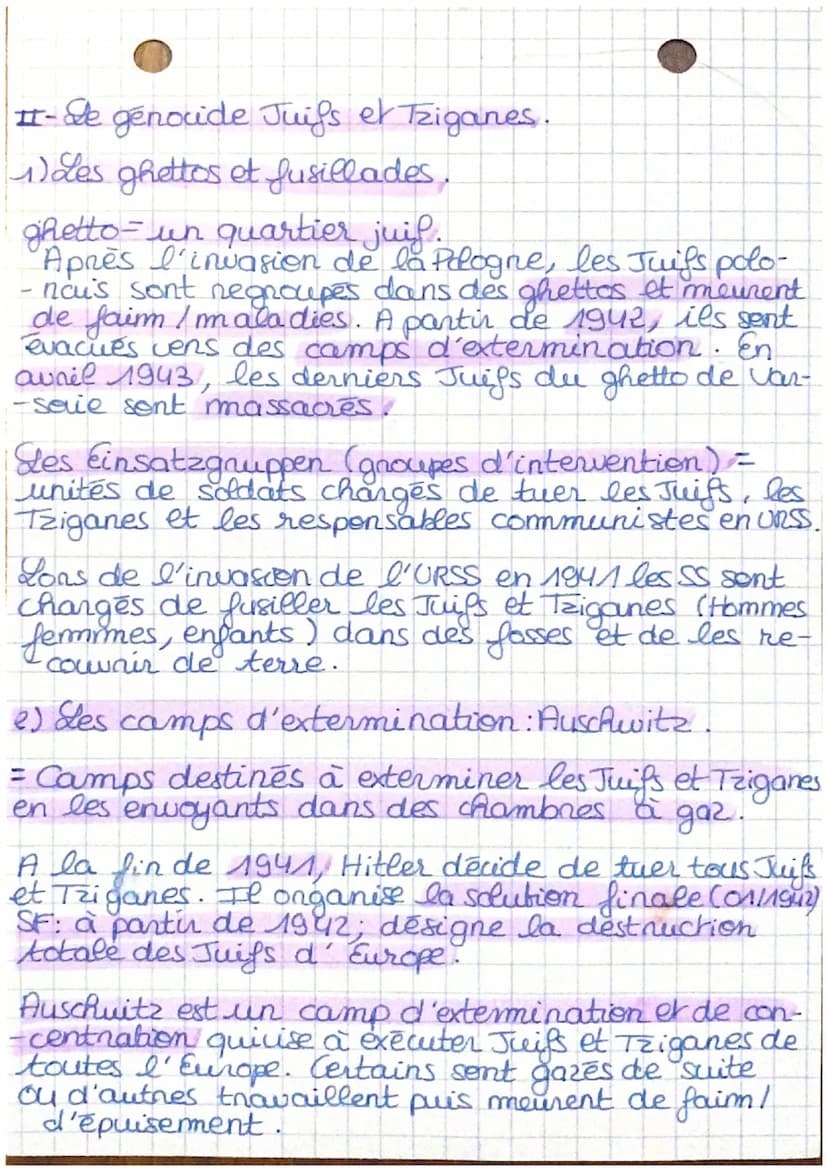 II- Le génocide Juifs et Tziganes.
1) Les ghettos et fusillades.
ghetto = un quartier juif.
Après l'invasion de la Pologne, les Juifs polo-
- nais sont regroupés dans des ghettos et meurent
de faim / maladies. A partir de 1942, ils sont
évacués vers des camps d'extermination. En
avril 1943, les derniers Juifs du ghetto de Var-
-sovie sont massacrés.
Les Einsatzgruppen (groupes d'intervention) =
unités de soldats chargés de tuer les Juifs, les
Tziganes et les responsables communistes en URSS.
Lors de l'invasion de l'URSS en 1941 les SS sont
chargés de fusiller les Juifs et Tziganes (Hommes
femmes, enfants) dans des fosses et de les re-
couvrir de terre.
2) Les camps d'extermination : Auschwitz.
= Camps destinés à exterminer les Juifs et Tziganes
en les envoyants dans des chambres à gaz.
A la fin de 1941, Hitler décide de tuer tous Juifs
et Tziganes. Il organise la solution finale (01/1942)
SF: à partir de 1942; désigne la destruction
totale des Juifs d'Europe.
Auschwitz est un camp d'extermination et de con-
-centration qui vise à exécuter Juifs et Tziganes de
toutes l'Europe. Certains sont gazés de suite
ou d'autres travaillent puis meurent de faim /
d'épuisement.